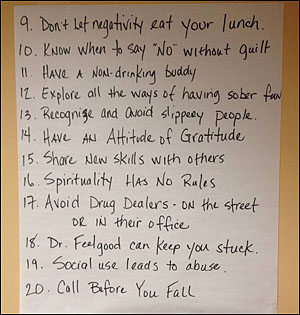 9. Don't let negativity eat your lunch.
10. Know when to say "No" without guilt
11. Have a non-drinking buddy
12. Explore all the ways of having sober fun
13. Recognize and avoid slippery people.
14. Have an Attitude of Gratitude
15. Share new skills with others
16. Spirituality Has No Rules
17. Avoid Drug Dealers - on the street
or in their office
18. Dr. Feelgood can keep you stuck.
19. Social use leads to abuse.
20. Call Before You Fall